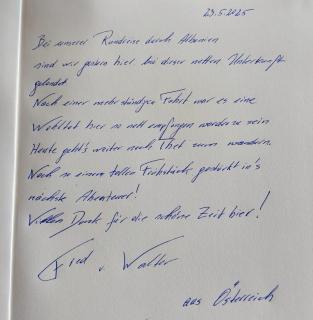 29.5.2025
Bei unserer Rundreise durch Albanien
sind wir gestern hier bei dieser netten Unterkunft
gelandet
Nach einer mehrstündigen Fahrt war es eine
Wohltat hier so nett empfangen worden zu sein
Heute geht's weiter nach Thet zum wandern.
Nach so einem tollen Frühstück gestärkt in's
nächste Abenteuer!
Vielen Dank für die schöne Zeit hier!
Fred u. Walter
aus Österreich